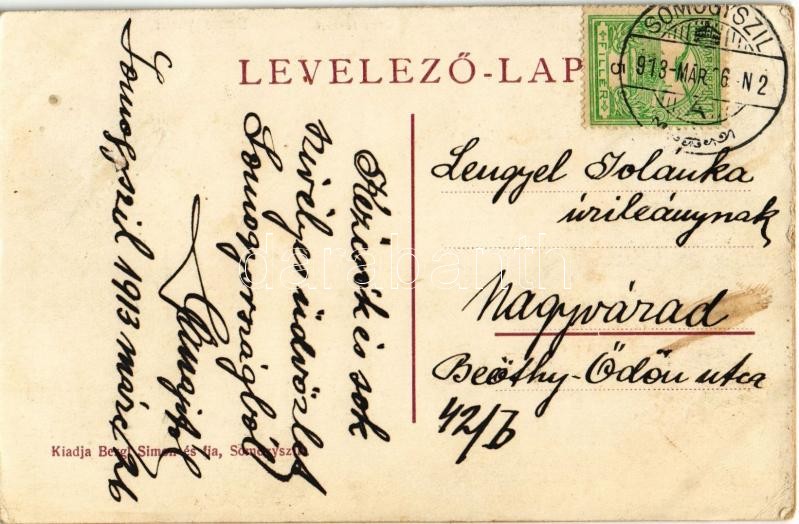 LEVELEZŐ-LAP
SOMOGYSZIL
913 MÁR 26 N2
5 FILLÉR
Lengyel Jolanka
úrileánynak
Nagyvárad
Beöthy-Ödön utca
42/b
Kézicsók és sok
szivélyes üdvözlet
Somogyországból
Somogyszil 1913 márc. 26
Kiadja Bergl Simon és fia, Somogyszil
darabanth